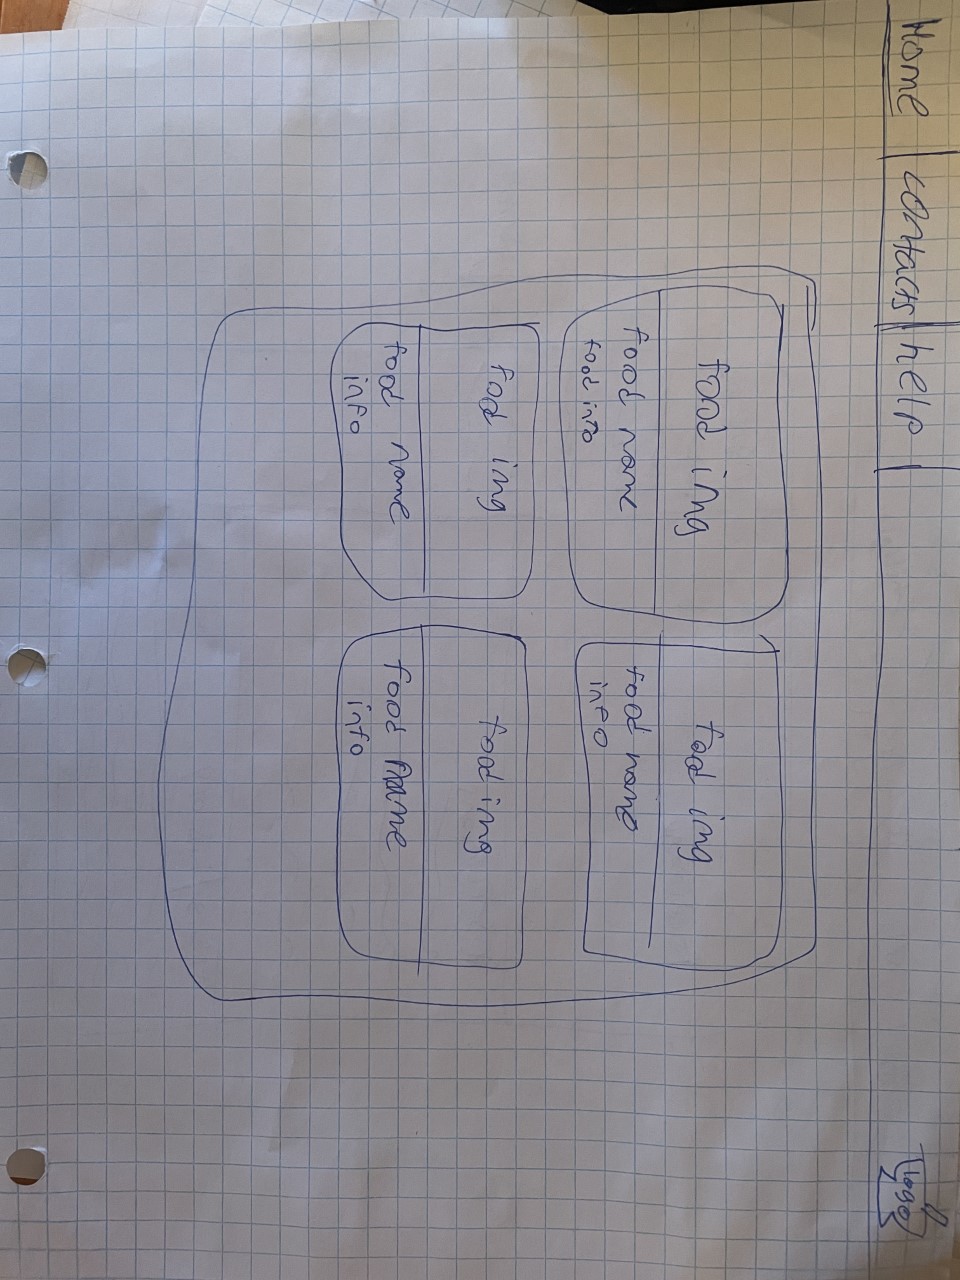 Home contacts help
logo
food img
food name
food info
food img
food name
info
food img
food name
info
food img
food name
info